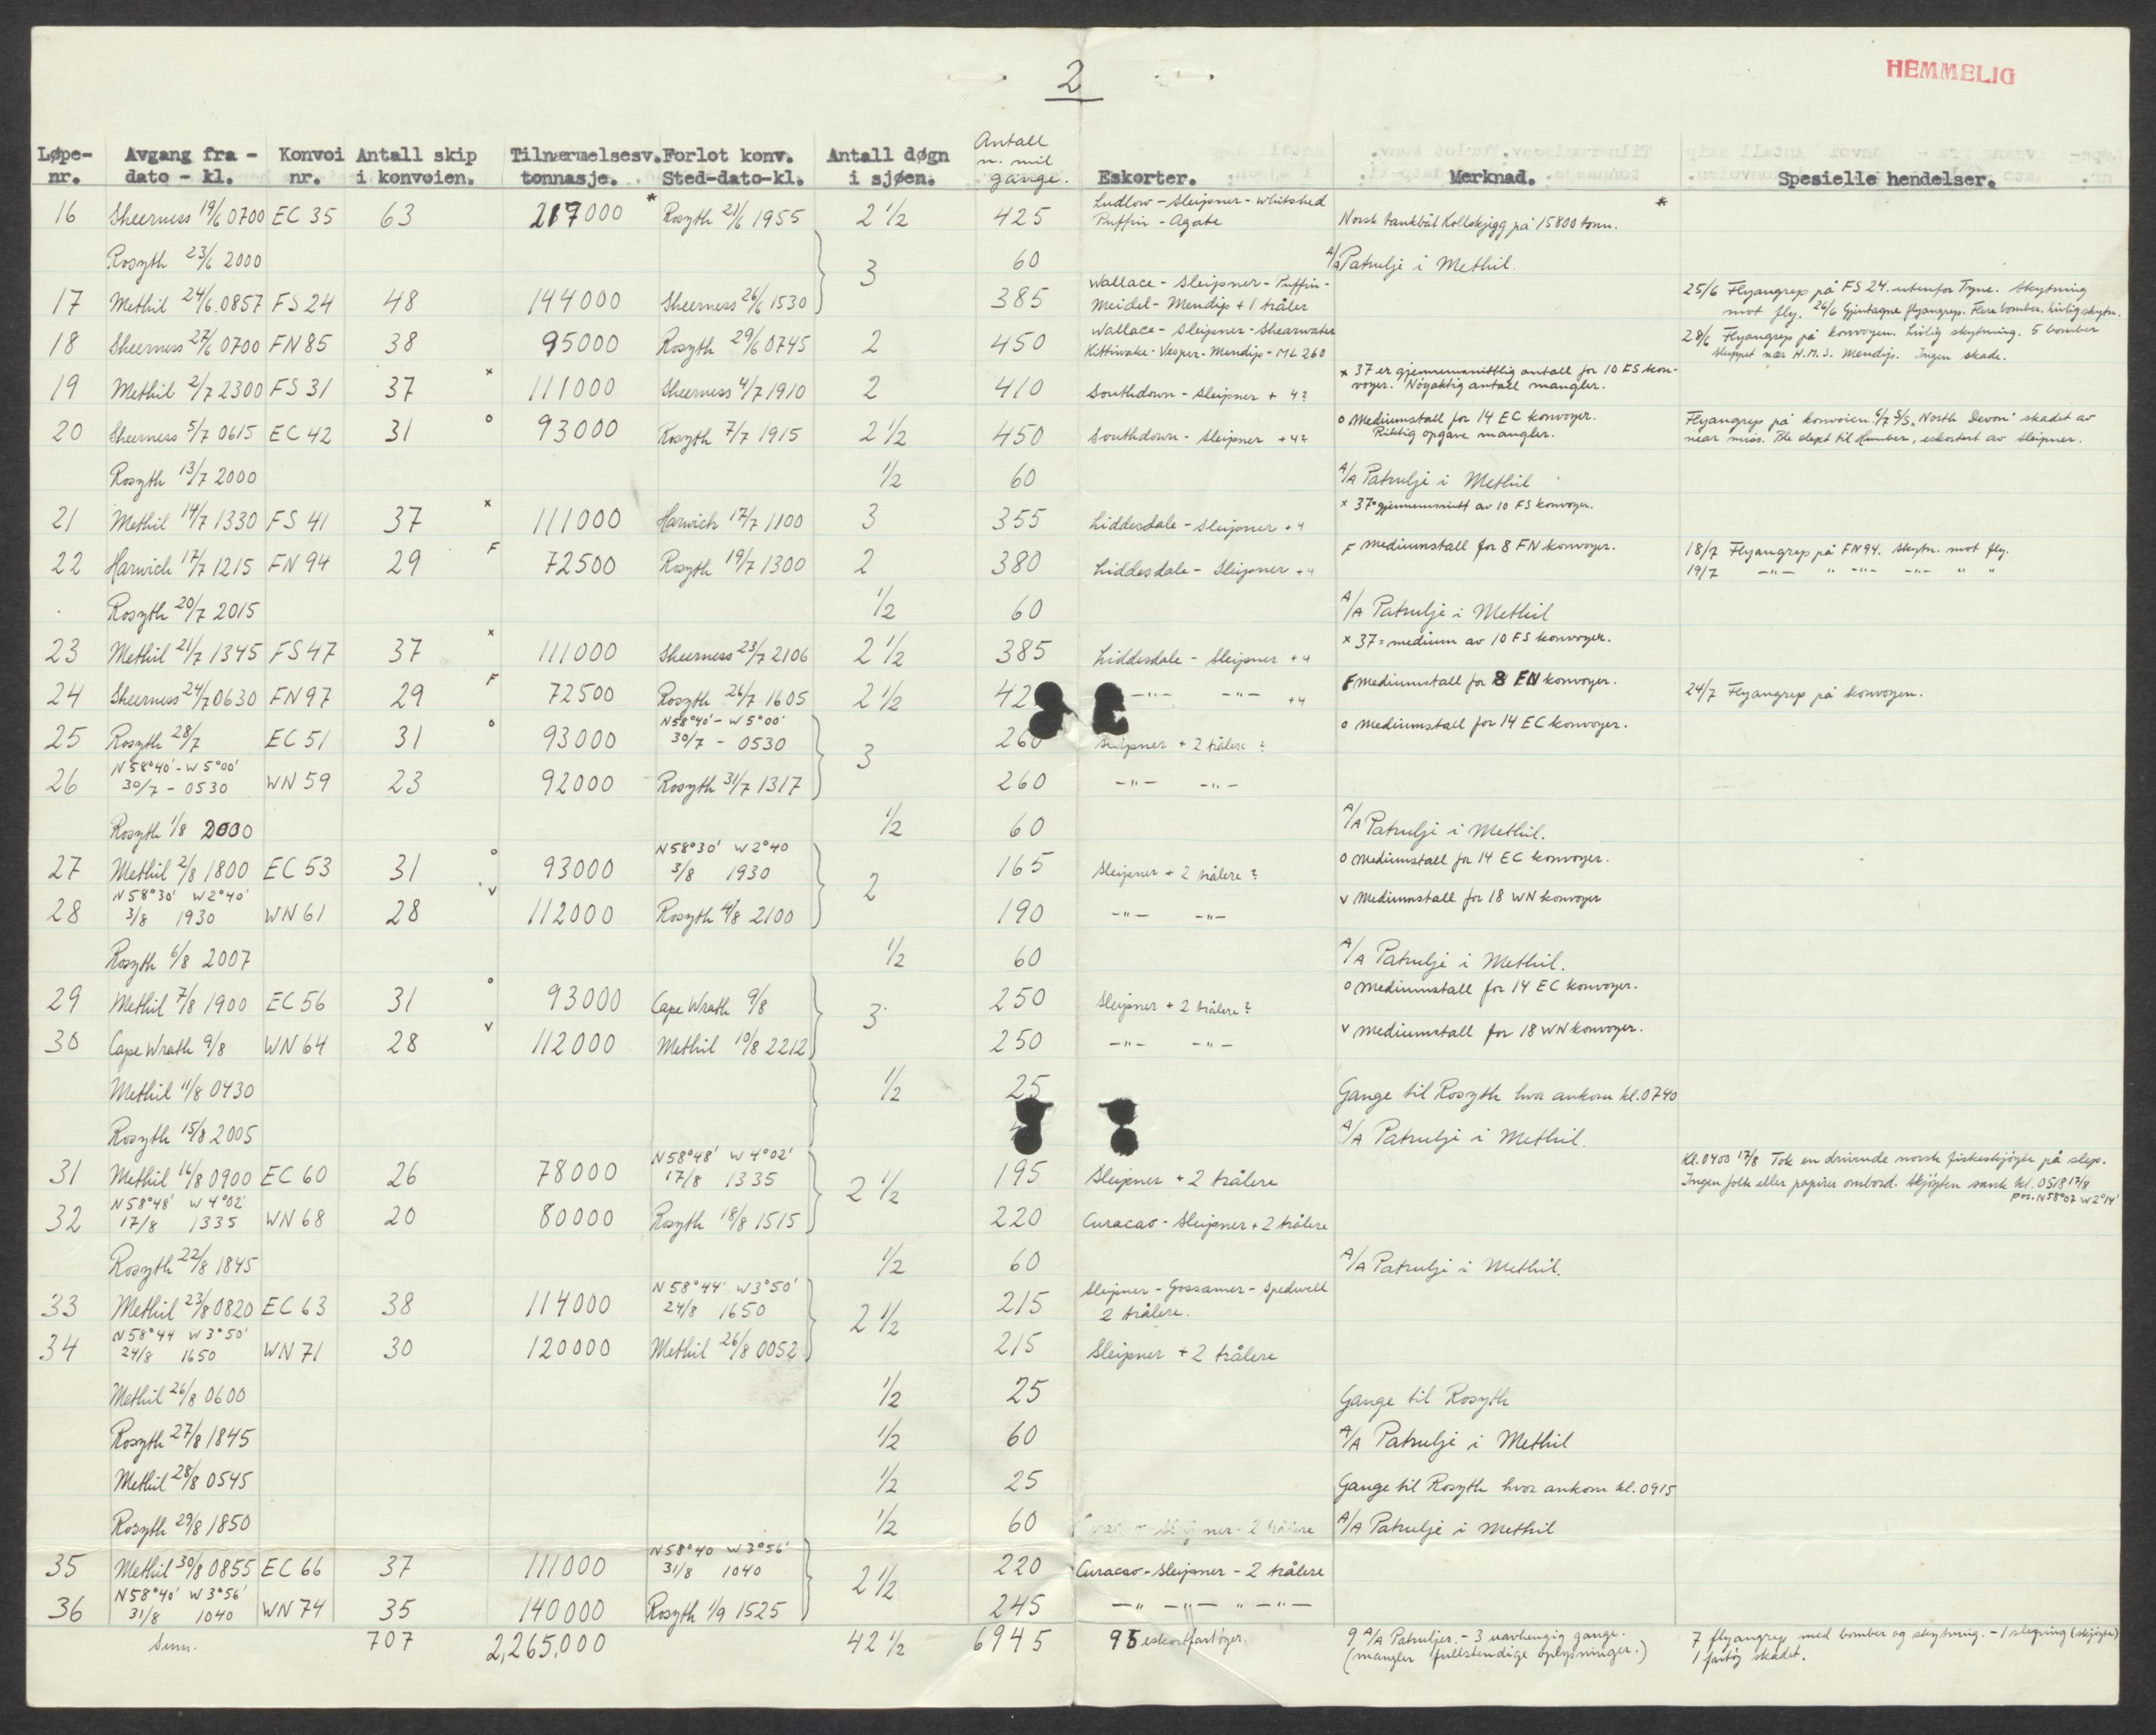 2
HEMMELIG
Løpe-nr. Avgang fra - dato - kl. Konvoi nr. Antall skip i konvoien. Tilnærmelsesv. tonnasje. Forlot konv. Sted-dato-kl. Antall døgn i sjøen. Antall n. mil gange. Eskorter. Merknad. Spesielle hendelser.
16 Sheerness 19/6 0700 EC 35 63 217000 * Rosyth 21/6 1955 2 1/2 425 Ludlow - Sleipner - Whitshed Puffin - Agate * Norsk tankbåt Kollskjegg på 15800 tonn.
Rosyth 23/6 2000 3 60 A/A Patrulje i Methil.
17 Methil 24/6 0857 FS 24 48 144000 Sheerness 26/6 1530 385 Wallace - Sleipner - Puffin - Meidel - Mendip + 1 tråler 25/6 Flyangrep på FS 24 utenfor Tyne. Skytning mot fly. 26/6 Gjentagne flyangrep. Flere bomber. livlig skytn.
18 Sheerness 27/6 0700 FN 85 38 95000 Rosyth 29/6 0745 2 450 Wallace - Sleipner - Shearwater Kittiwake - Vesper - Mendip - ML 260 28/6 Flyangrep på konvoyen. Livlig skytning. 5 bomber sluppet nær H.M.S. Mendip. Ingen skade.
19 Methil 2/7 2300 FS 31 37 x 111000 Sheerness 4/7 1910 2 410 Southdown - Sleipner + 4? x 37 er gjennemsnittlig antall for 10 FS konvoyer. Nøyaktig antall mangler.
20 Sheerness 5/7 0615 EC 42 31 o 93000 Rosyth 7/7 1915 2 1/2 450 Southdown - Sleipner + 4? o Mediumstall for 14 EC konvoyer. Riktig opgave mangler. Flyangrep på konvoien 6/7 S/S "North Devon" skadet av near miss. Ble slept til Humber, eskortert av Sleipner.
Rosyth 13/7 2000 1/2 60 A/A Patrulje i Methil
21 Methil 14/7 1330 FS 41 37 x 111000 Harwich 17/7 1100 3 355 Liddesdale - Sleipner + 4 x 37 = gjennemsnitt av 10 FS konvoyer.
22 Harwich 17/7 1215 FN 94 29 F 72500 Rosyth 19/7 1300 2 380 Liddesdale - Sleipner + 4 F Mediumstall for 8 FN konvoyer. 18/7 Flyangrep på FN 94. Skytn. mot fly.
19/7 -"- " -"- -"- " "
Rosyth 20/7 2015 1/2 60 A/A Patrulje i Methil
23 Methil 21/7 1345 FS 47 37 x 111000 Sheerness 23/7 2106 2 1/2 385 Liddesdale - Sleipner + 4 x 37 = medium av 10 FS konvoyer.
24 Sheerness 24/7 0630 FN 97 29 F 72500 Rosyth 26/7 1605 2 1/2 42 -"- -"- + 4 F Mediumstall for 8 FN konvoyer. 24/7 Flyangrep på konvoyen.
25 Rosyth 28/7 EC 51 31 o 93000 N 58°40' - W 5°00' 30/7 - 0530 3 260 Sleipner + 2 trålere ? o Mediumstall for 14 EC konvoyer.
26 N 58°40' - W 5°00' 30/7 - 0530 WN 59 23 92000 Rosyth 31/7 1317 260 -"- -"-
Rosyth 1/8 2000 1/2 60 A/A Patrulje i Methil.
27 Methil 2/8 1800 EC 53 31 o 93000 N 58°30' W 2°40 3/8 1930 2 165 Sleipner + 2 trålere ? o Mediumstall for 14 EC konvoyer.
28 N 58°30' W 2°40' 3/8 1930 WN 61 28 v 112000 Rosyth 4/8 2100 190 -"- -"- v Mediumstall for 18 WN konvoyer
Rosyth 6/8 2007 1/2 60 A/A Patrulje i Methil.
29 Methil 7/8 1900 EC 56 31 o 93000 Cape Wrath 9/8 3 250 Sleipner + 2 trålere ? o Mediumstall for 14 EC konvoyer.
30 Cape Wrath 9/8 WN 64 28 v 112000 Methil 10/8 2212 250 -"- -"- v Mediumstall for 18 WN konvoyer.
Methil 11/8 0430 1/2 25 Gange til Rosyth hvor ankom kl. 0740
Rosyth 15/8 2005 A/A Patrulje i Methil.
31 Methil 16/8 0900 EC 60 26 78000 N 58°48' W 4°02' 17/8 1335 2 1/2 195 Sleipner + 2 trålere Kl. 0400 17/8 Tok en drivende norsk fiskeskjøyte på slep. Ingen folk eller papirer ombord. Skjøyten sank kl. 0518 17/8 pos. N 58°07 W 2°14'
32 N 58°48' W 4°02' 17/8 1335 WN 68 20 80000 Rosyth 18/8 1515 220 Curacao - Sleipner + 2 trålere
Rosyth 22/8 1845 1/2 60 A/A Patrulje i Methil.
33 Methil 23/8 0820 EC 63 38 114000 N 58°44' W 3°50' 24/8 1650 2 1/2 215 Sleipner - Gossamer - Spedwell 2 trålere.
34 N 58°44 W 3°50' 24/8 1650 WN 71 30 120000 Methil 26/8 0052 215 Sleipner + 2 trålere
Methil 26/8 0600 1/2 25 Gange til Rosyth
Rosyth 27/8 1845 1/2 60 A/A Patrulje i Methil
Methil 28/8 0545 1/2 25 Gange til Rosyth hvor ankom kl. 0915
Rosyth 29/8 1850 1/2 60 A/A Patrulje i Methil
35 Methil 30/8 0855 EC 66 37 111000 N 58°40 W 3°56' 31/8 1040 2 1/2 220 Curacao - Sleipner - 2 trålere
36 N 58°40' W 3°56' 31/8 1040 WN 74 35 140000 Rosyth 1/9 1525 245 -" -"- " -"-
Sum. 707 2,265,000 42 1/2 6945 95 eskortfartøyer. 9 A/A Patruljer. - 3 uavhengig gange. (mangler fullstendige oplysninger.) 7 flyangrep med bomber og skytning. - 1 sleping (skjøyte) 1 fartøy skadet.